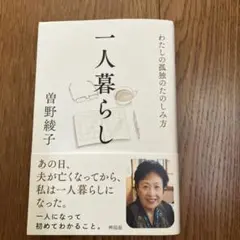 わたしの孤独のたのしみ方
一人暮らし
曽野綾子
あの日、
夫が亡くなってから、
私は一人暮らしに
なった。
一人になって
初めてわかること。
興陽館